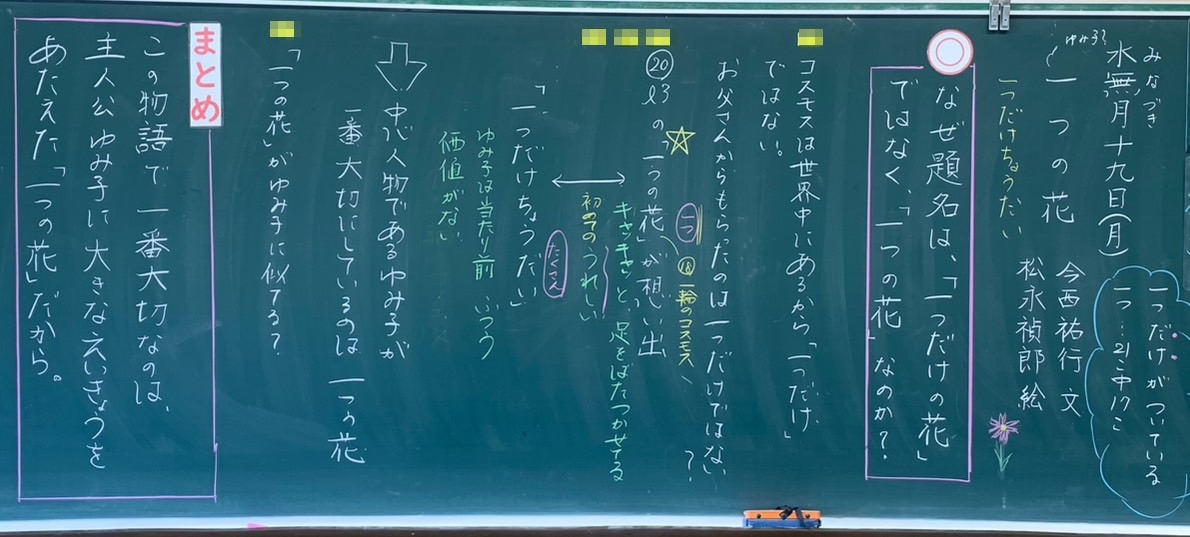 みなづき
水無月十九日(月)
一つだけがついている
一つ…21こ中17こ
ゆみ子?
一つの花
今西祐行 文
松永禎郎 絵
一つだけちょうだい
なぜ題名は、「一つだけの花」
ではなく、「一つの花」なのか?
コスモスは世界中にあるから「一つだけ」
ではない。
お父さんからもらったのは一つだけではない
?
⑳ l3の「一つの花」が想い出
一つ
⑱一輪のコスモス
キャッキャッと、足をばたつかせる
初めてのうれしい
「一つだけちょうだい」
たくさん
ゆみ子は当たり前 ふつう
価値がない
中心人物であるゆみ子が
一番大切にしているのは 一つの花
「一つの花」がゆみ子に似てる?
まとめ
この物語で一番大切なのは、
主人公ゆみ子に大きなえいきょうを
あたえた「一つの花」だから。